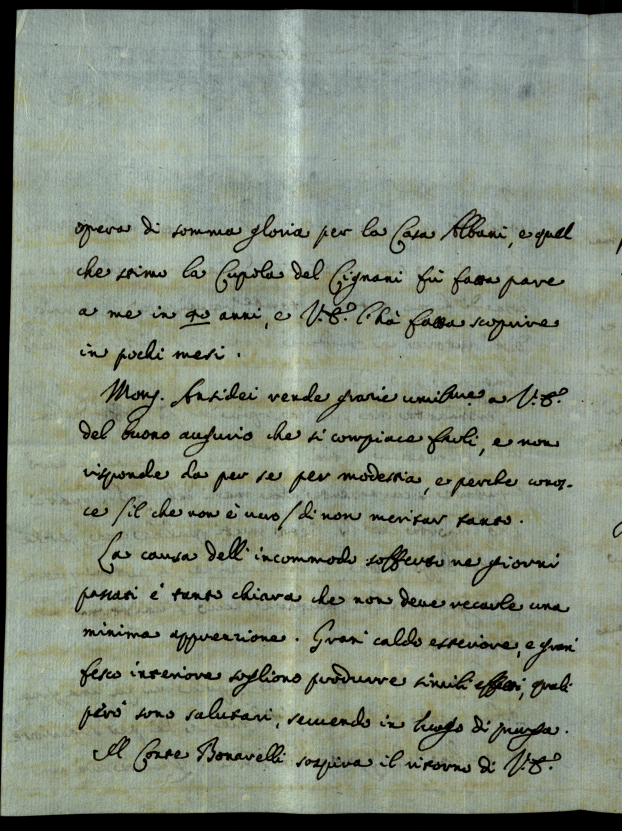 opera di somma gloria per la Casa Albani, e quel
che stimo la Cupola del Cignani fù fatta pare
a me in anni, e V.E. l'hà fatta scoprire
in pochi mesi.
Mons. Ansidei rende grazie umilme a V.E.
del buono augurio che si compiace farli, e non
risponde da per se per modestia, e perche conos-
ce /il che non è vero/ di non meritar tanto.
La causa dell'incommodo sofferto ne giorni
passati è tanto chiara che non deve recarle una
minima apprenzione. Gran caldo esteriore, e gran
fesco interiore sogliono produrre simili effetti, quali
però sono salutari, servendo in luogo di purga.
Il Conte Bonarelli sospira il ritorno di V.E.